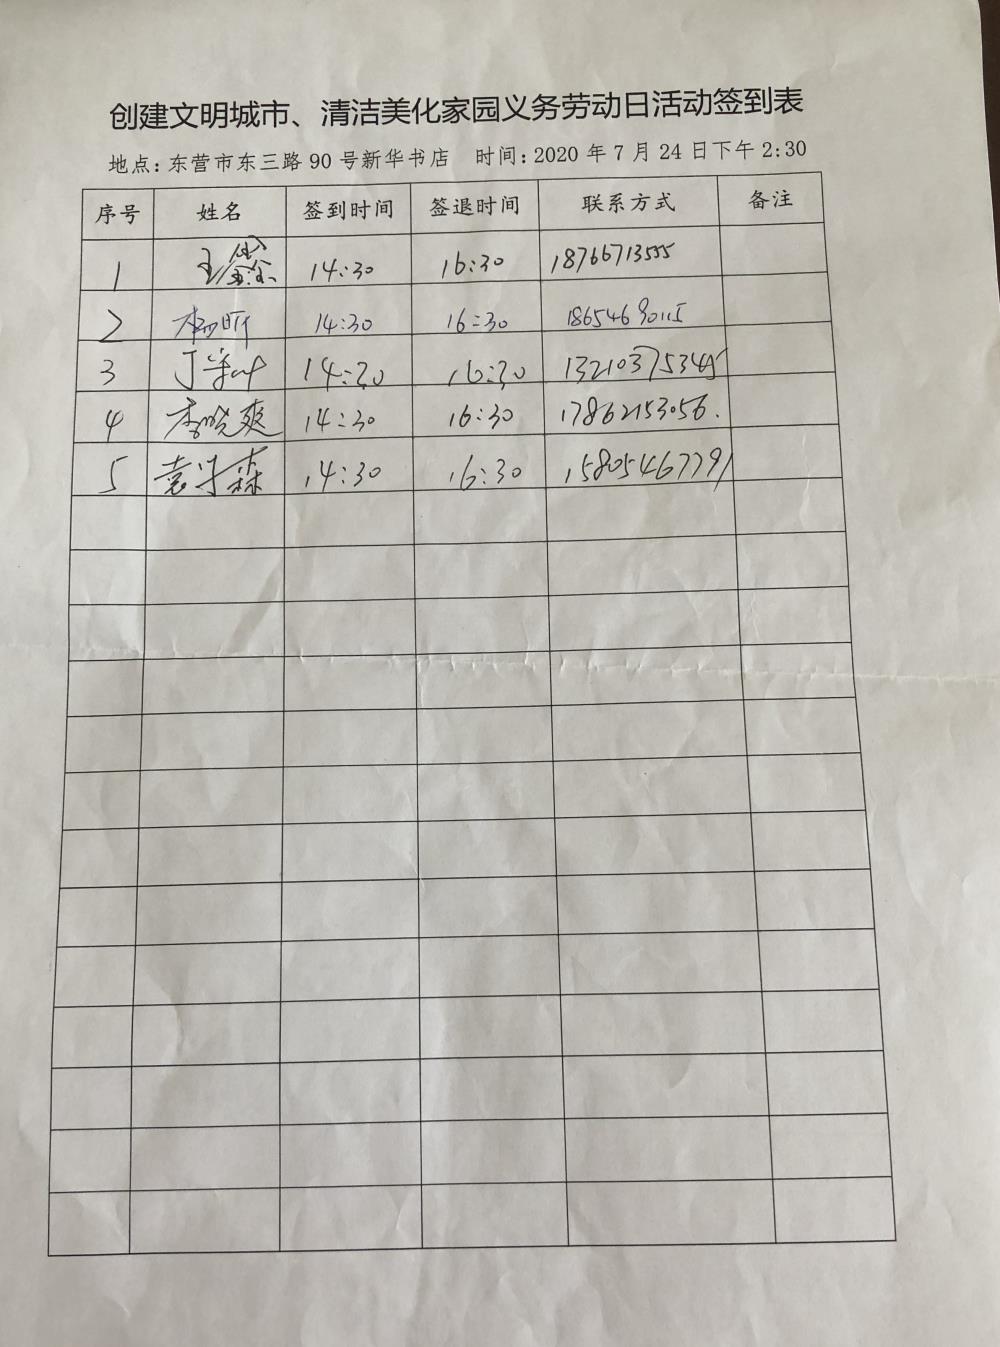 创建文明城市、清洁美化家园义务劳动日活动签到表
地点:东营市东三路90号新华书店 时间:2020年7月24日下午2:30
序号 姓名 签到时间 签退时间 联系方式 备注
1 王 14:30 16:30 18766713555
2 杨昕 14:30 16:30
3 丁 14:30 16:30 13210375345
4 李晓爽 14:30 16:30 17862153056.
5 袁 森 14:30 16:30 15805467791